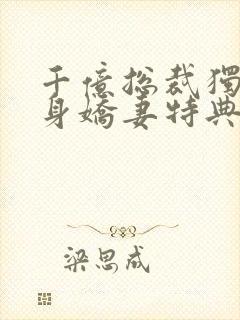 千億總裁獨
身嬌妻特典
梁思成